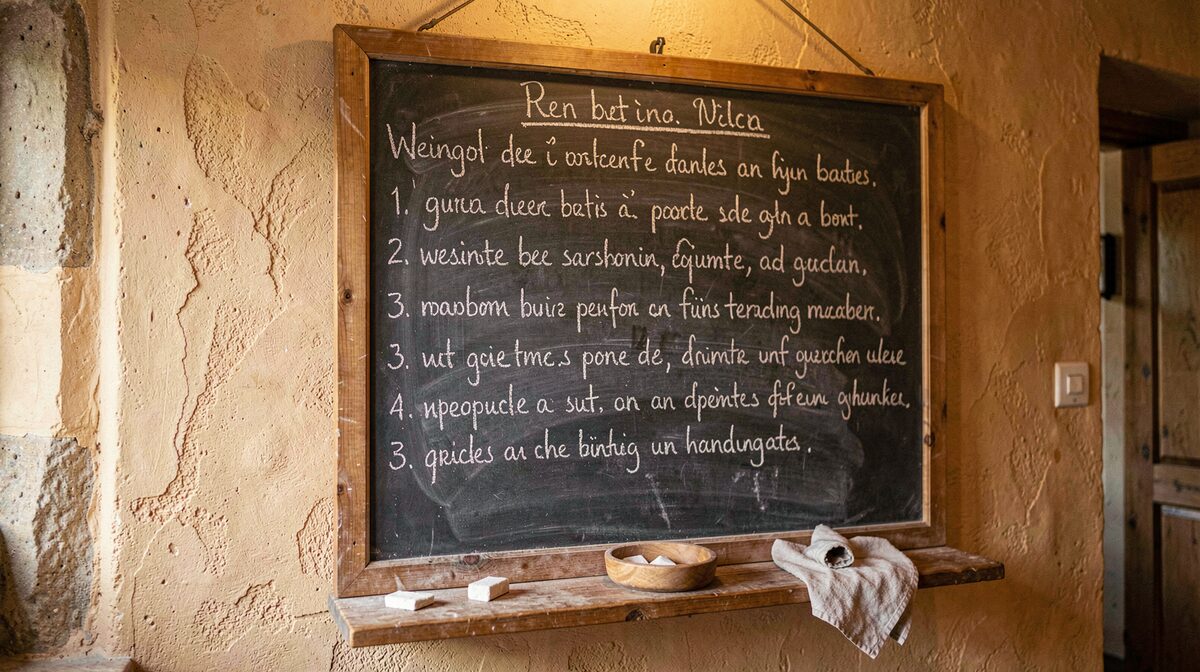 Ren betina. Nilca
Weingol dee i ortcenfe danles an hjın baties.
1. guıa duee betis à poorte sde gln a bont.
2. wesinte bee sarshonin, ĝqumte, ad guclan.
3. naobom buiz penfon an füns terading mucaben.
3. ut gcie tmc.s pone de, drimte unf guzcchen ulele
4. npeopucle a sut, on an dpeintes
3. gricles au che bintiıg un handungates.